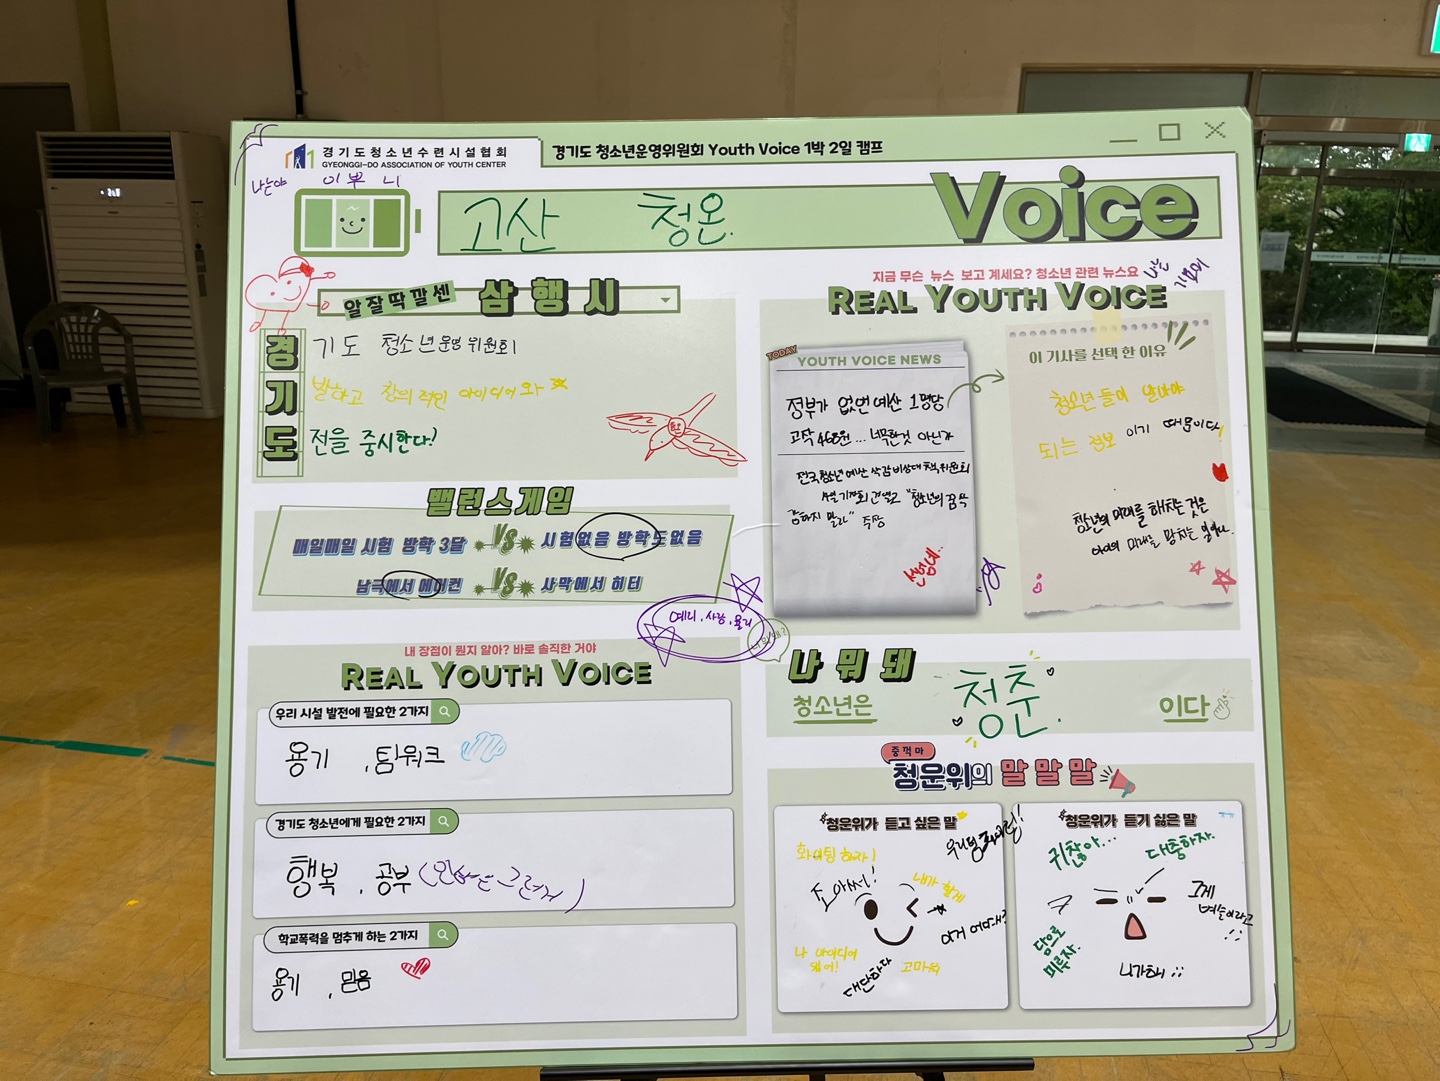 경기도청소년수련시설협회
GYEONGGI-DO ASSOCIATION OF YOUTH CENTER
경기도 청소년운영위원회 Youth Voice 1박 2일 캠프
나는야 이쁘니
고산 청온.
Voice
알잘딱깔센 삼행시
경 기도 청소년운영위원회
기 발하고 창의적인 아이디어와
도 전을 중시한다!
밸런스게임
매일매일 시험 방학 3달 VS 시험없음 방학도없음
남극에서 에어컨 VS 사막에서 히터
예리, 사랑, 율리
내 장점이 뭔지 알아? 바로 솔직한 거야
REAL YOUTH VOICE
우리 시설 발전에 필요한 2가지
용기, 팀워크
경기도 청소년에게 필요한 2가지
행복, 공부
학교폭력을 멈추게 하는 2가지
용기, 믿음
지금 무슨 뉴스 보고 계세요? 청소년 관련 뉴스요
REAL YOUTH VOICE
TODAY
YOUTH VOICE NEWS
정부가 없앤 예산 1명당
고작 468원... 너무한것 아닌가
전국청소년예산 삭감 비상대책위원회
기자회견 열고 "청소년의 꿈 싹
말라" 주장
선넘네..
이 기사를 선택 한 이유
청소년들이 알아야
되는 정보 이기 때문이다!
청소년의 미래를 해치는 것은
미래를 망치는 일이다.
나 뭐 돼
청소년은 청춘. 이다
중꺾마
청운위의 말 말 말
청운위가 듣고 싶은 말
화이팅 하자!
조아써!
내가 할게
이거 어때?
나 아이디어 있어!
대단하다
고마워
청운위가 듣기 싫은 말
귀찮아...
대충하자.
그게 벼슬이라고
담으로 미루자.
니가해